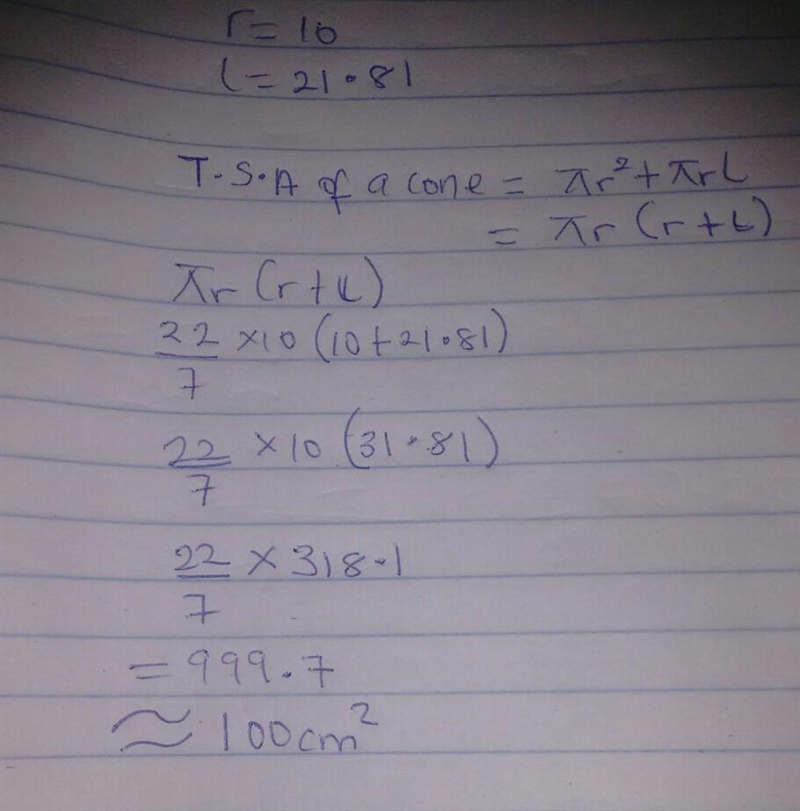 r = 10
l = 21.81
T.S.A of a cone = πr² + πrL
= πr (r + L)
πr (r + L)
22/7 × 10 (10 + 21.81)
22/7 × 10 (31.81)
22/7 × 318.1
= 999.7
≈ 100cm²